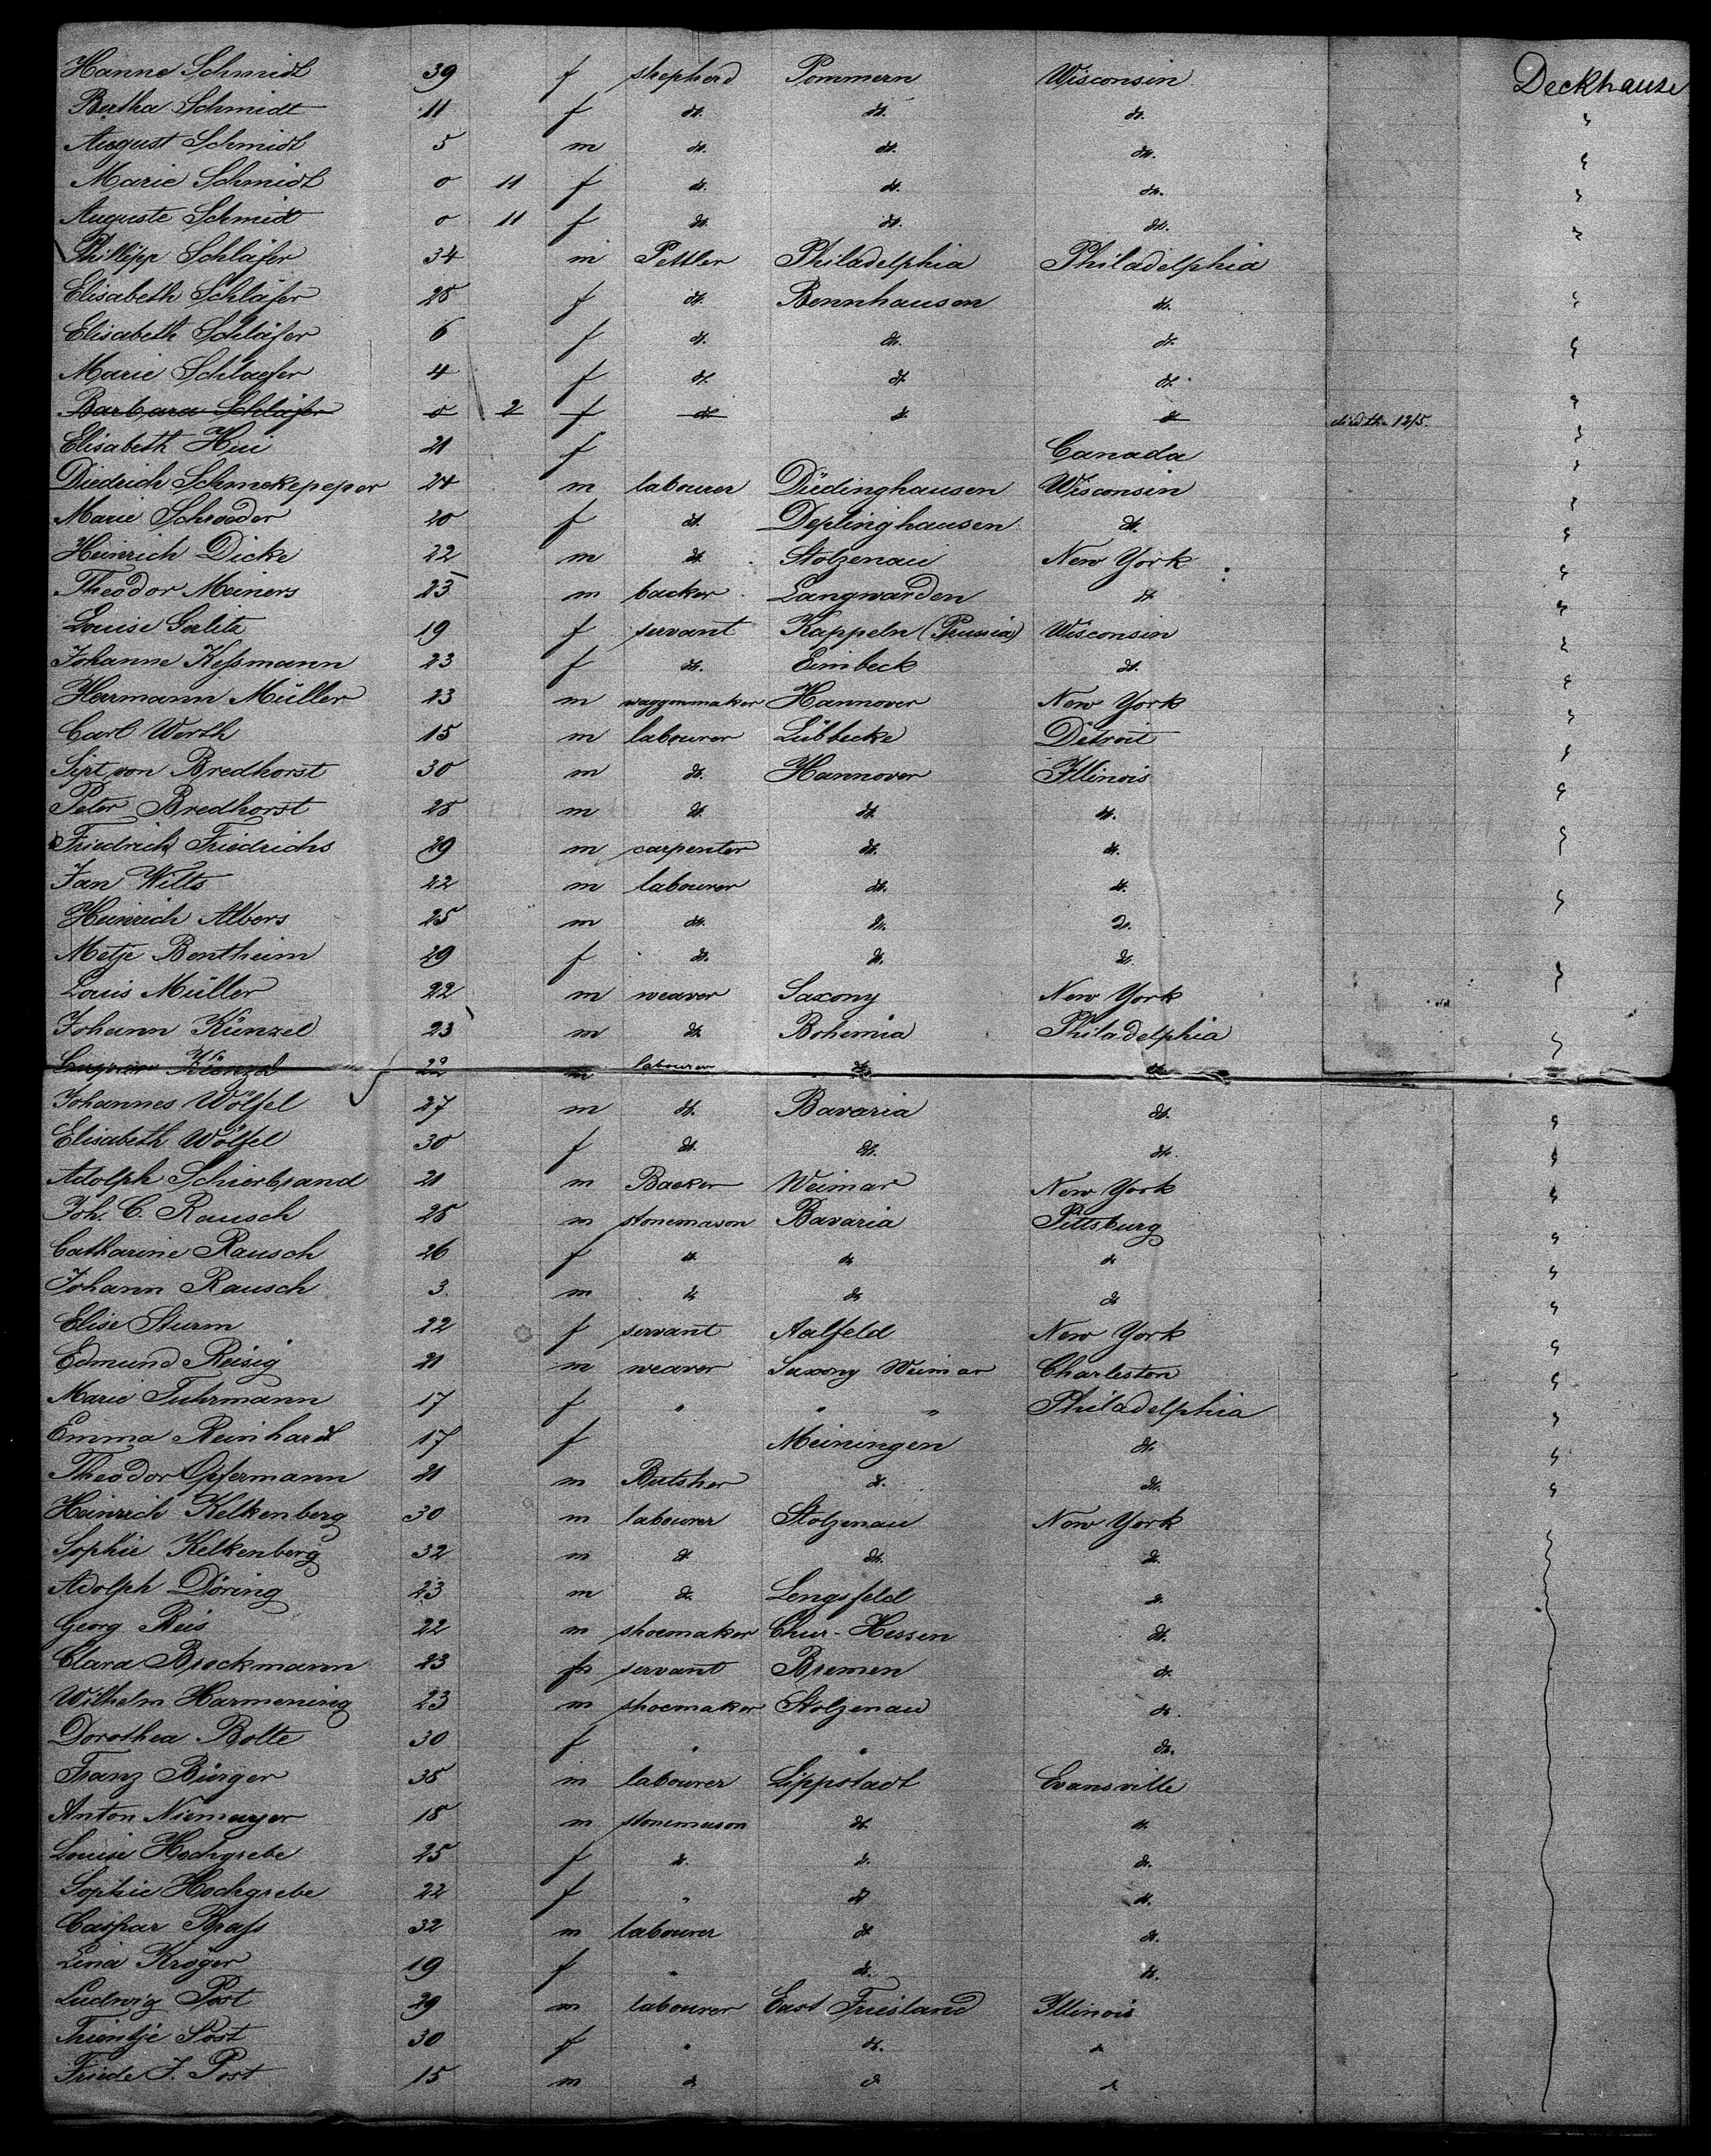 Hanne Schmidt 39 f shepherd Pommern Wisconsin Deckhause
Bertha Schmidt 11 f do. do. do. "
August Schmidt 5 m do. do. do. "
Marie Schmidt 0 11 f do. do. do. "
Auguste Schmidt 0 11 f do. do. do. "
Phillipp Schläfer 34 m Pettler Philadelphia Philadelphia
Elisabeth Schläfer 28 f do. Bennhausen do. "
Elisabeth Schläfer 6 f do. do. do. "
Marie Schlaefer 4 f do. do do. "
Barbara Schläfer 0 2 f do do do died the 12/5. "
Elisabeth Hui 21 f Canada "
Diedrich Schmekepeper 24 m labourer Düdinghausen Wisconsin "
Marie Schroeder 20 f do. Deplinghausen do. "
Heinrich Dicke 22 m do. Stolzenau New York "
Theodor Meiners 23 m backer Langwarden do "
Louise Gerlitz 19 f servant Kappeln (Prussia) Wisconsin "
Johanne Keßmann 23 f do. Eimbeck do. "
Herrmann Müller 23 m waggonmaker Hannover New York "
Carl Werth 15 m labourer Lübbecke Detroit "
von Bredhorst 30 m do. Hannover Illinois "
Peter Bredhorst 28 m do. do. do. "
Friedrich Friedrichs 29 m carpenter do. do. "
Jan Wilts 22 m labourer do. do.
Heinrich Albers 25 m do. do. do. "
Metje Bentheim 29 f do. do. do.
Louis Müller 22 m weaver Saxony New York "
Johann Künzel 23 m do. Bohemia Philadelphia "
Künzel 22 m labourer do. do.
Johannes Wölfel 27 m do. Bavaria do. "
Elisabeth Wölfel 30 f do. do. do. "
Adolph Schierbrand 21 m Backer Weimar New York "
Joh. C. Rausch 28 m stonemason Bavaria Pittsburg "
Catharine Rausch 26 f do do do "
Johann Rausch 3 m do do do "
Elise Sturm 22 f servant Aalfeld New York "
Edmund Reisig 21 m weaver Saxony Weimar Charleston "
Marie Fuhrmann 17 f " " " Philadelphia "
Emma Reinhardt 17 f Meiningen do. "
Theodor Opfermann 21 m Butsher do. do. "
Heinrich Kelkenberg 30 m labourer Stolzenau New York
Sophie Kelkenberg 32 m do do. do.
Adolph Döring 23 m do. Lengsfeld do.
Georg Reis 22 m shoemaker Chur-Hessen do.
Clara Brockmann 23 f servant Bremen do.
Wilhelm Harmening 23 m shoemaker Stolzenau do.
Dorothea Bolte 30 f " " do.
Franz Bürger 35 m labourer Lippstadt Evansville
Anton Niemeyer 18 m stonemason do. do.
Louise Hochgrebe 25 f do. do. do.
Sophie Hochgrebe 22 f " do do.
Caspar Braß 32 m labourer do do.
Lina Kröger 19 f " do. do.
Ludwig Post 29 m labourer East Friesland Illinois
Trientje Post 30 f " do. do
Friede J. Post 15 m do do do